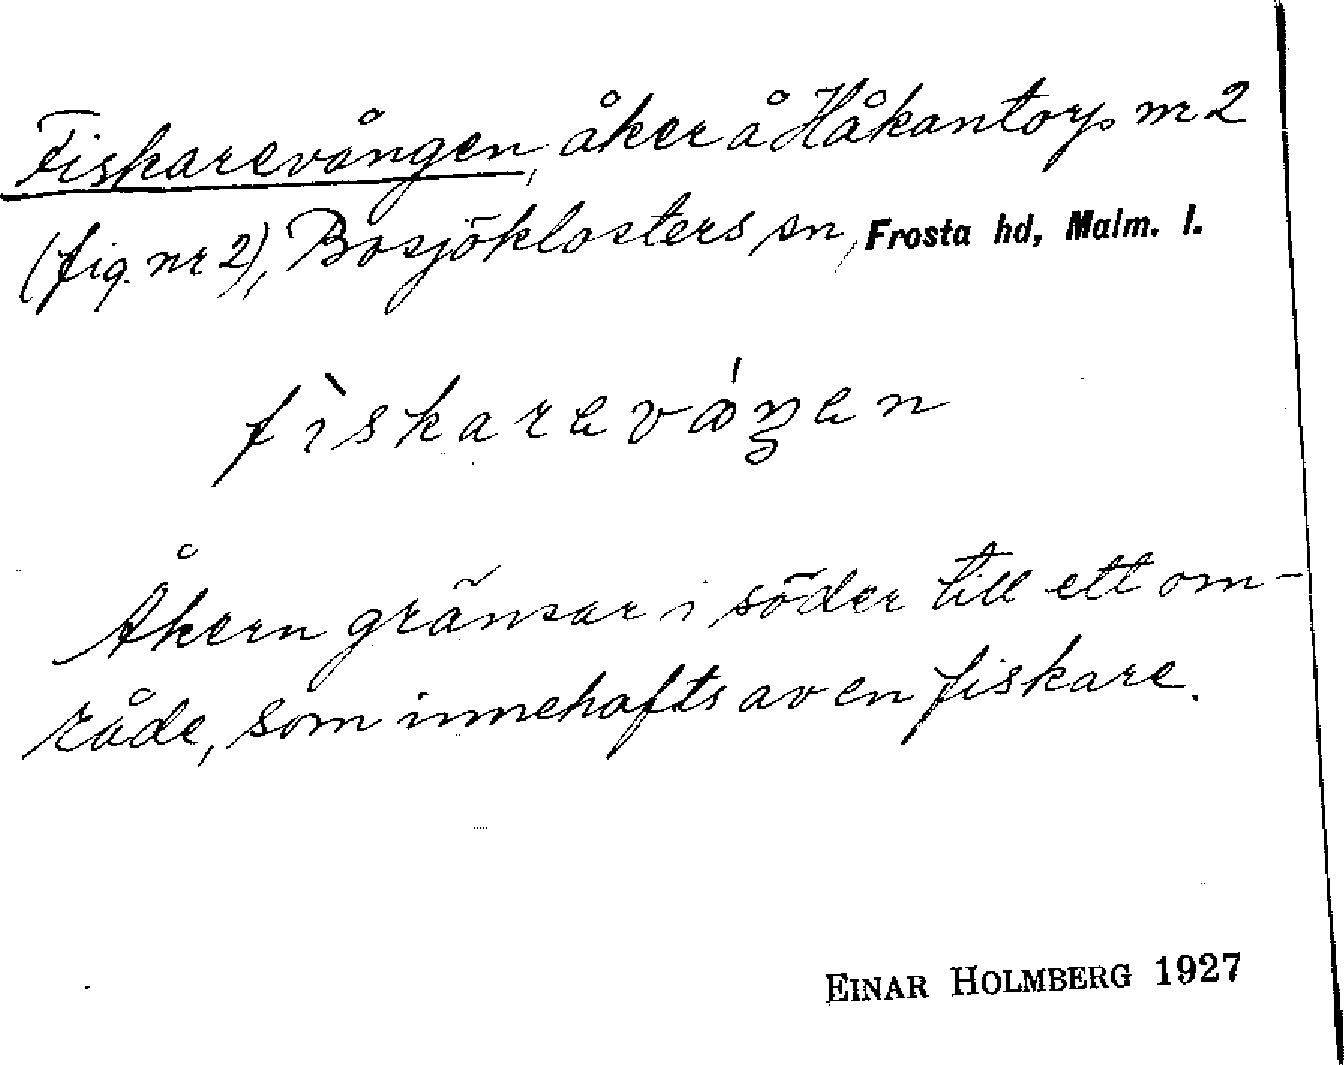 Fiskarevången, åker å Håkantorp nr 2
(fig. nr 2), Bosjöklosters sn, Frosta hd, Malm. l.
fìskarevåŋen
Åkern gränsar i söder till ett om-
råde, som innehafts av en fiskare.
EINAR HOLMBERG 1927